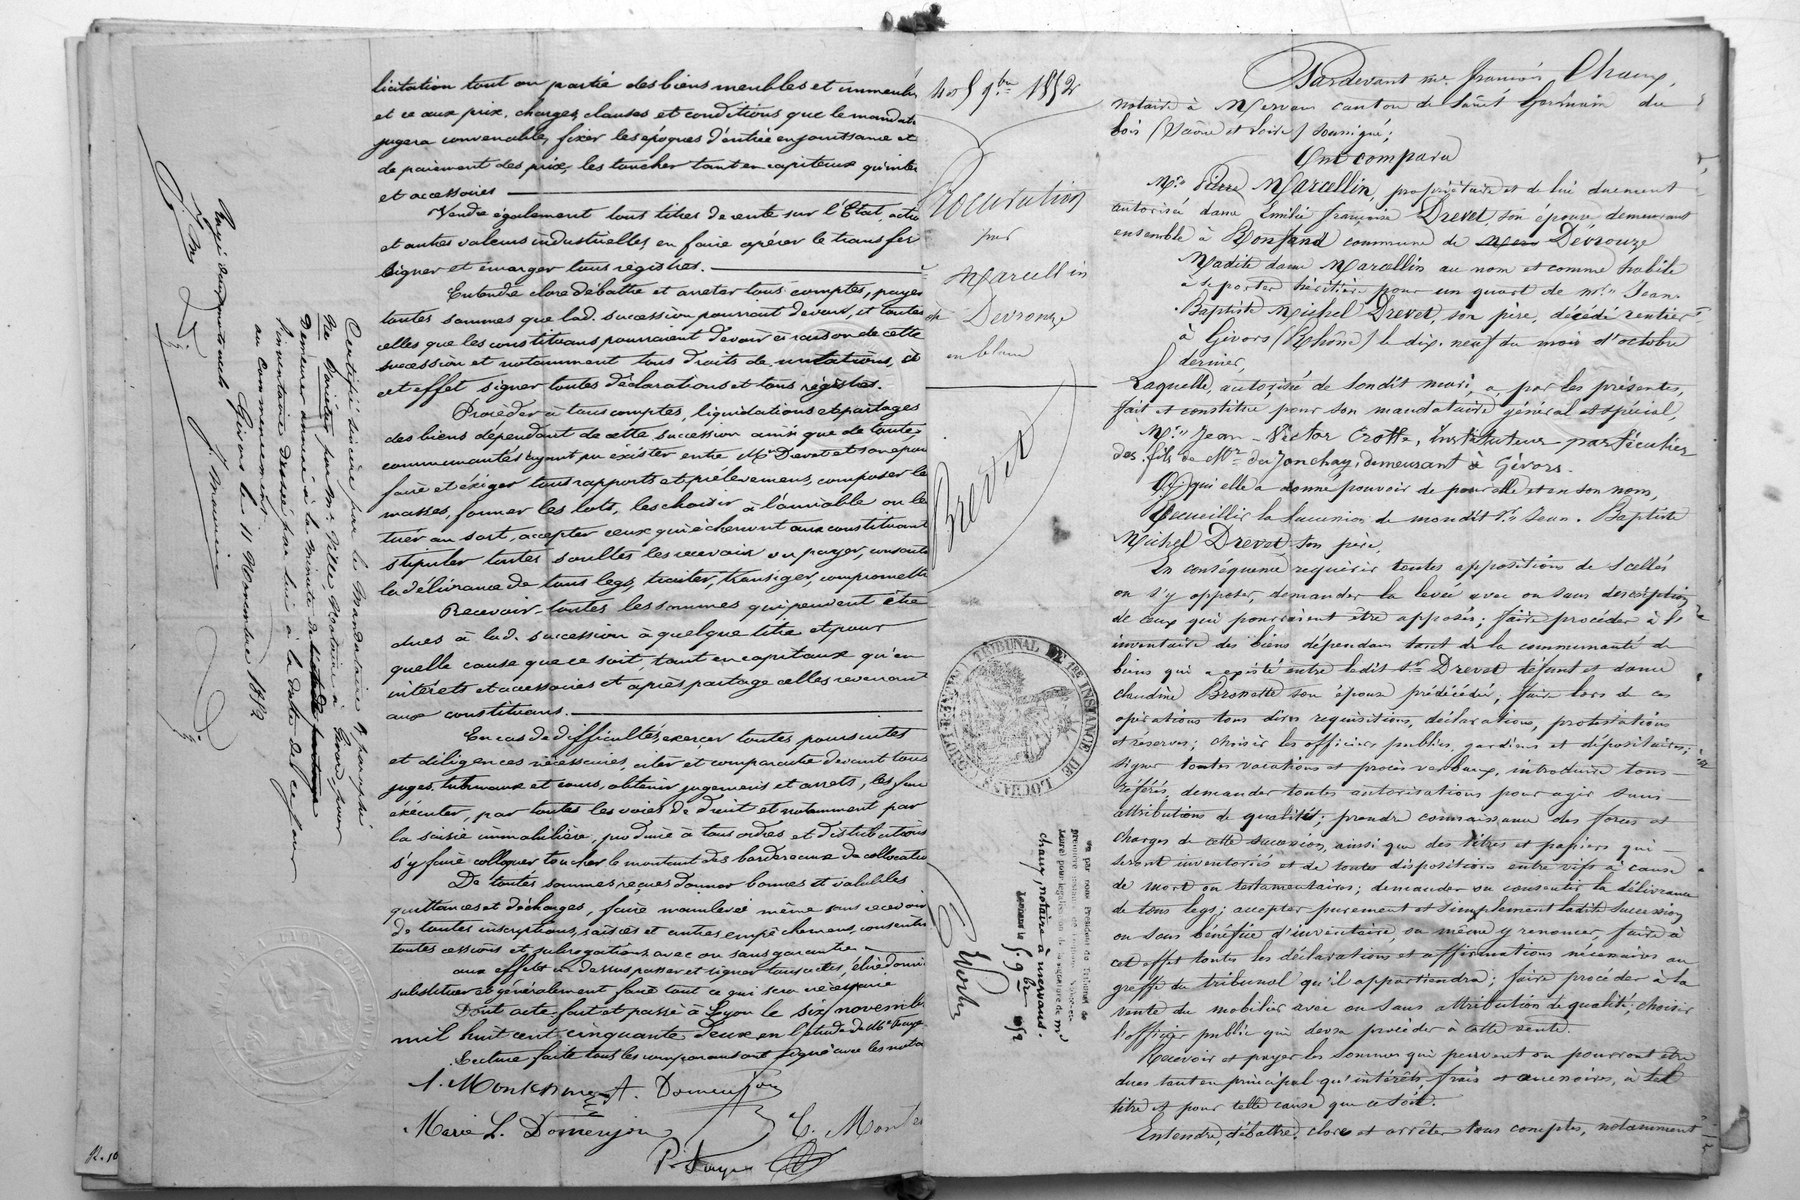 licitation tout ou partie des biens meubles et immeubl
et ce aux prix, charges, clauses et conditions que le mandat
jugera convenables, fixer les époques d'entrée en jouissance et
de paiement des prix, les toucher tant en capitaux qu'inté
et accessoires
Vendre également tous titres de rente sur l'Etat, actio
et autres valeurs industrielles, en faire opérer le transfer
signer et émarger tous registres.
Entendre clore débattre et arreter tous comptes, payer
toutes sommes que lad. succession pourrait devoir, et toutes
celles que les constituans pourraient devoir à raison de cette
succession et notamment tous droits de mutations, à
cet effet signer toutes déclarations et tous registres.
Procéder à tous comptes, liquidations et partages
des biens dépendant de cette succession ainsi que de toute
communautés ayant pu exister entre Mr Drevet et son épou
faire et éxiger tous rapports et prélèvemens, composer le
masses, former les lots, les choisir à l'amiable ou les
tirer au sort, accepter ceux qui écherront aux constituant
stipuler toutes soultes les recevoir ou payer, consentir
la délivrance de tous legs, traiter, transiger, compromettre
Recevoir toutes les sommes qui peuvent être
dues à lad. succession à quelque titre et pour
quelle cause que ce soit, tant en capitaux qu'en
intérets et accessoires et après partage celles revenant
aux constituans.
En cas de difficultés, exercer toutes poursuites
et diligences nécessaires, citer et comparaître devant tous
juges, tribunaux et cours, obtenir jugemens et arrets, les faire
éxécuter, par toutes les voies de droit et notamment par
la saisie immobilière, produire à tous ordres et distributions
s'y faire colloquer toucher le montant des bordereaux de collocatio
De toutes sommes reçues donner bonnes et valables
quittances et décharges, faire mainlevée même sans recevoir
de toutes inscriptions, saisies et autres empêchemens, consentir
toutes cessions et subrogations avec ou sans garantie
aux effets ci dessus passer et signer tous actes, élire domi
substituer et généralement faire tout ce qui sera nécessaire
Dont acte fait et passé à Lyon le six novemb
mil huit cent cinquante deux en l'étude de Me
Lecture faite tous les comparans ont signé avec les nota
A. Domenjou
Marie L. Domenjou
Certifié sincère par le Mandataire &amp; paraphé
par Mr Ville Notaire à Givors, pour
Demeurer annexé à la minute de
l'inventaire dressé par lui à la date de ce jour
au commencement.
Givors le 11 Novembre 1852
5 9bre 1852
Procuration
par
Marcellin
de Devrouze
en blanc
Brevet
TRIBUNAL DE 1ère INSTANCE DE LOUHANS
Vu par nous Président du Tribunal de
première instance de Louhans
pour légalisation de la signature de Mr
chaux, notaire à mervans.
Louhans le 5 9bre 1852
Pardevant me françois Chaux,
notaire à Mervans canton de Saint Germain du
bois (Saône et Loire) soussigné;
Ont comparu
Mr Pierre Marcellin, propriétaire et de lui duement
autorisée dame Emilie françoise Drevet, son épouse demeurant
ensemble à commune de Dévrouze
Madite dame Marcellin au nom et comme habile
à se porter héritière pour un quart de mr Jean-
Baptiste Michel Drevet, son père, décédé rentier
à Givors (Rhône) le dix neuf du mois d'octobre
dernier,
Laquelle, autorisée de sondit mari, a par les présentes,
fait et constitué pour son mandataire général et spécial,
Mr Jean-Victor Crotte, Instituteur particulier
des fils de Mr du Jonchay, demeurant à Givors.
qui elle a donné pouvoir de pour elle et en son nom,
Recueillir la succession de mondit Sr Jean-Baptiste
Michel Drevet son père,
En conséquence requérir toutes appositions de scellés
ou s'y opposer, demander la levée avec ou sans description
de ceux qui pourraient être apposés; faire procéder à
inventaire des biens dépendans tant de la communauté de
biens qui a existé entre ledit Sr Drevet défunt et dame
claudine son épouse prédécédée; faire lors de ces
opérations tous dires requisitions, déclarations, protestations
et réserves; choisir les officiers publics, gardiens et dépositaires;
signer toutes vacations et procès verbaux, introduire tous
référés, demander toutes autorisations pour agir sans
attributions de qualités; prendre connaissance des forces et
charges de cette succession, ainsi que des titres et papiers qui
seront inventoriés et de toutes dispositions entre vifs à cause
de mort ou testamentaires; demander ou consentir la délivrance
de tous legs; accepter purement et simplement ladite succession
ou sous bénéfice d'inventaire, ou même y renoncer, faire à
cet effet toutes les déclarations et affirmations nécessaires au
greffe du tribunal qu'il appartiendra; faire procéder à la
vente du mobilier avec ou sans attribution de qualité; choisir
l'officier public qui devra procéder à cette vente.
Recevoir et payer les sommes qui peuvent ou pourront être
dues tant en principal qu'intérêts, frais et accessoires, à tel
titre et pour telle cause que ce soit.
Entendre débattre, clore et arrêter tous comptes, notamment